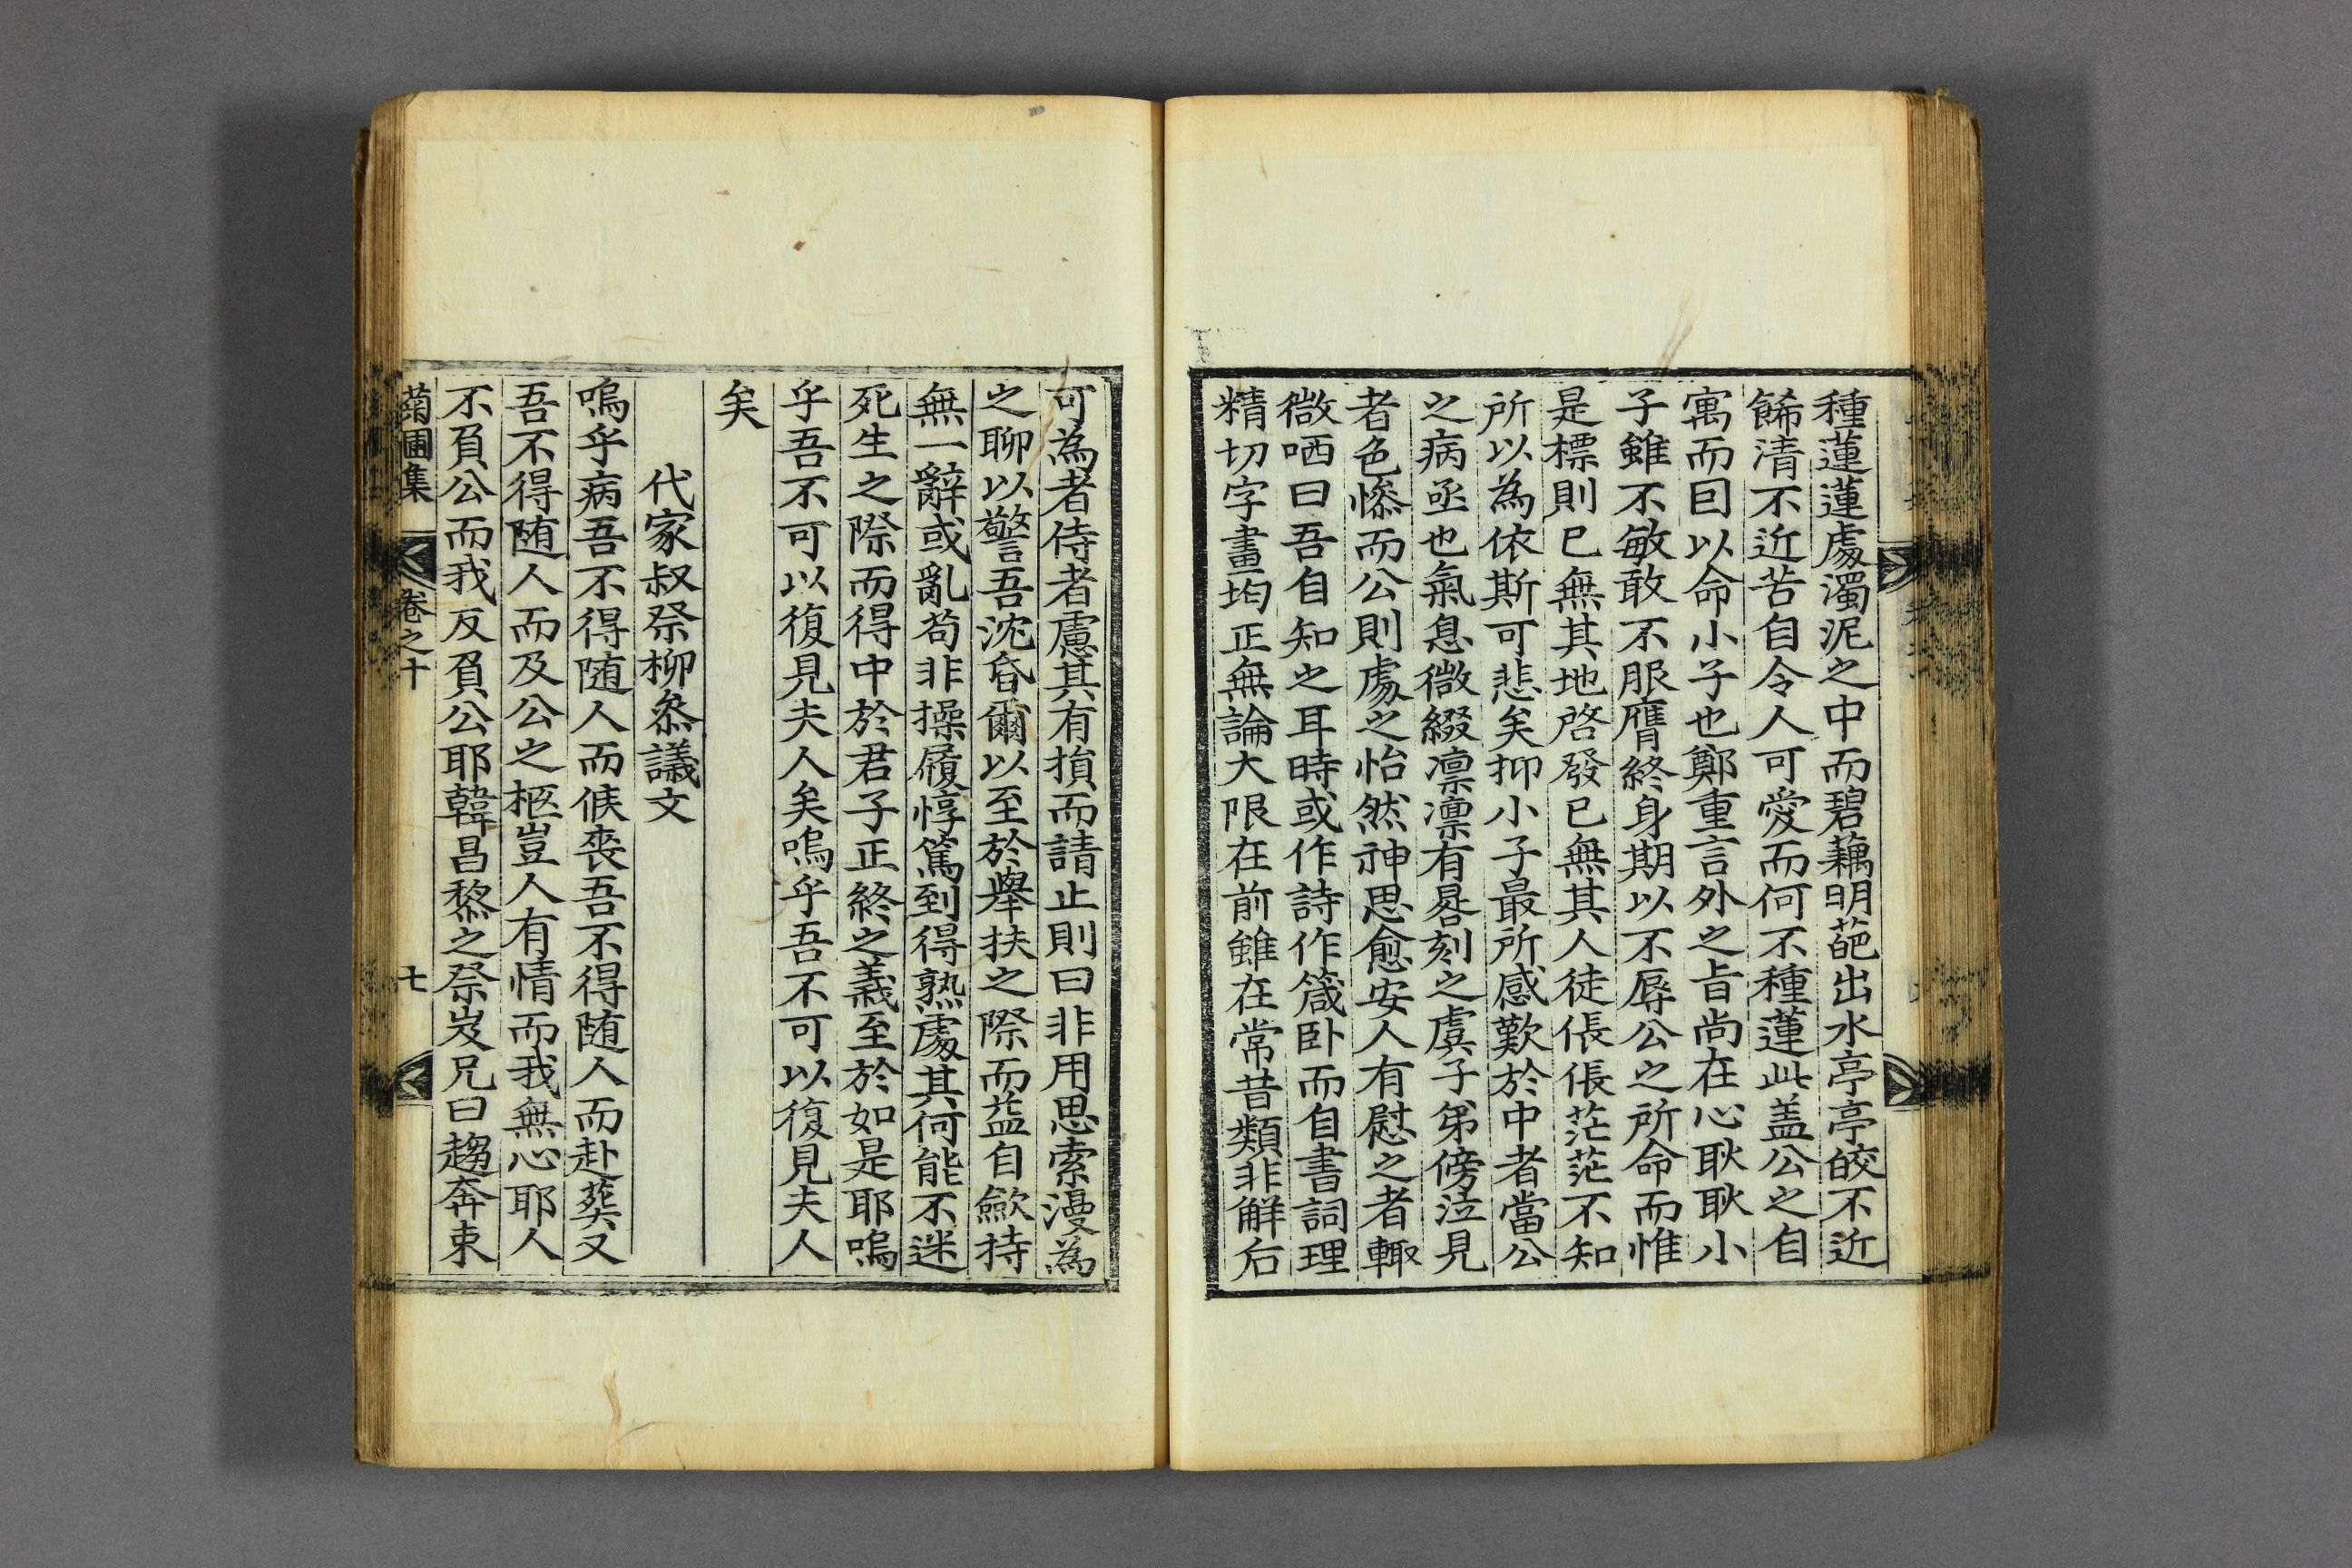 種蓮蓮處濁泥之中而碧藕明葩出水亭亭皎不近
餙清不近苦自令人可愛而何不種蓮此盖公之自
寓而囙以命小子也鄭重言外之㫖尚在心耿耿小
子雖不敏敢不服膺終身期以不辱公之所命而惟
是標則已無其地啓發已無其人徒倀倀茫茫不知
所以為依斯可悲矣抑小子最所感歎於中者當公
之病亟也氣息微綴凛凛有晷刻之虞子弟傍泣見
者色慘而公則處之怡然神思愈安人有慰之者輙
微哂曰吾自知之耳時或作詩作箴卧而自書詞理
精切字畫均正無論大限在前雖在常昔類非觧后
可為者侍者慮其有損而請止則曰非用思索漫為
之聊以警吾沈昏爾以至於舉扶之際而益自歛持
無一辭或亂苟非操履惇篤到得熟處其何能不迷
死生之際而得中於君子正終之義至於如是耶嗚
乎吾不可以復見夫人矣嗚乎吾不可以復見夫人
矣
代家叔祭柳叅議文
嗚乎病吾不得随人而候喪吾不得随人而赴葬又
吾不得随人而及公之柩豈人有情而我無心耶人
不負公而我反負公耶韓昌黎之祭岌兄曰趨奔束
菊圃集 卷之十 七